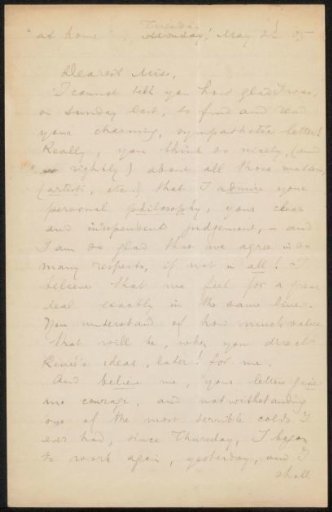 Tuesday
"at home", Monday, May 2 05
Dearest Miss,
I cannot tell you how glad I was,
on Sunday last, to find and read
your charming, sympathetic letter!
Really, you think so nicely, (and
so rightly) about all those matters
(artist, etc.) that I admire your
personal philosophy, your clear
and independent judgement, - and
I am so glad that we agree in so
many respects, if not in all! I
believe that we feel for a great
deal exactly in the same line.
You understand of how much value
that will be, when you direct
ideas, later! for me.
And believe me, your letters gave
me courage, and notwithstanding
one of the most terrible colds I
ever had, since Thursday, I began
to work again, yesterday, and I
shall